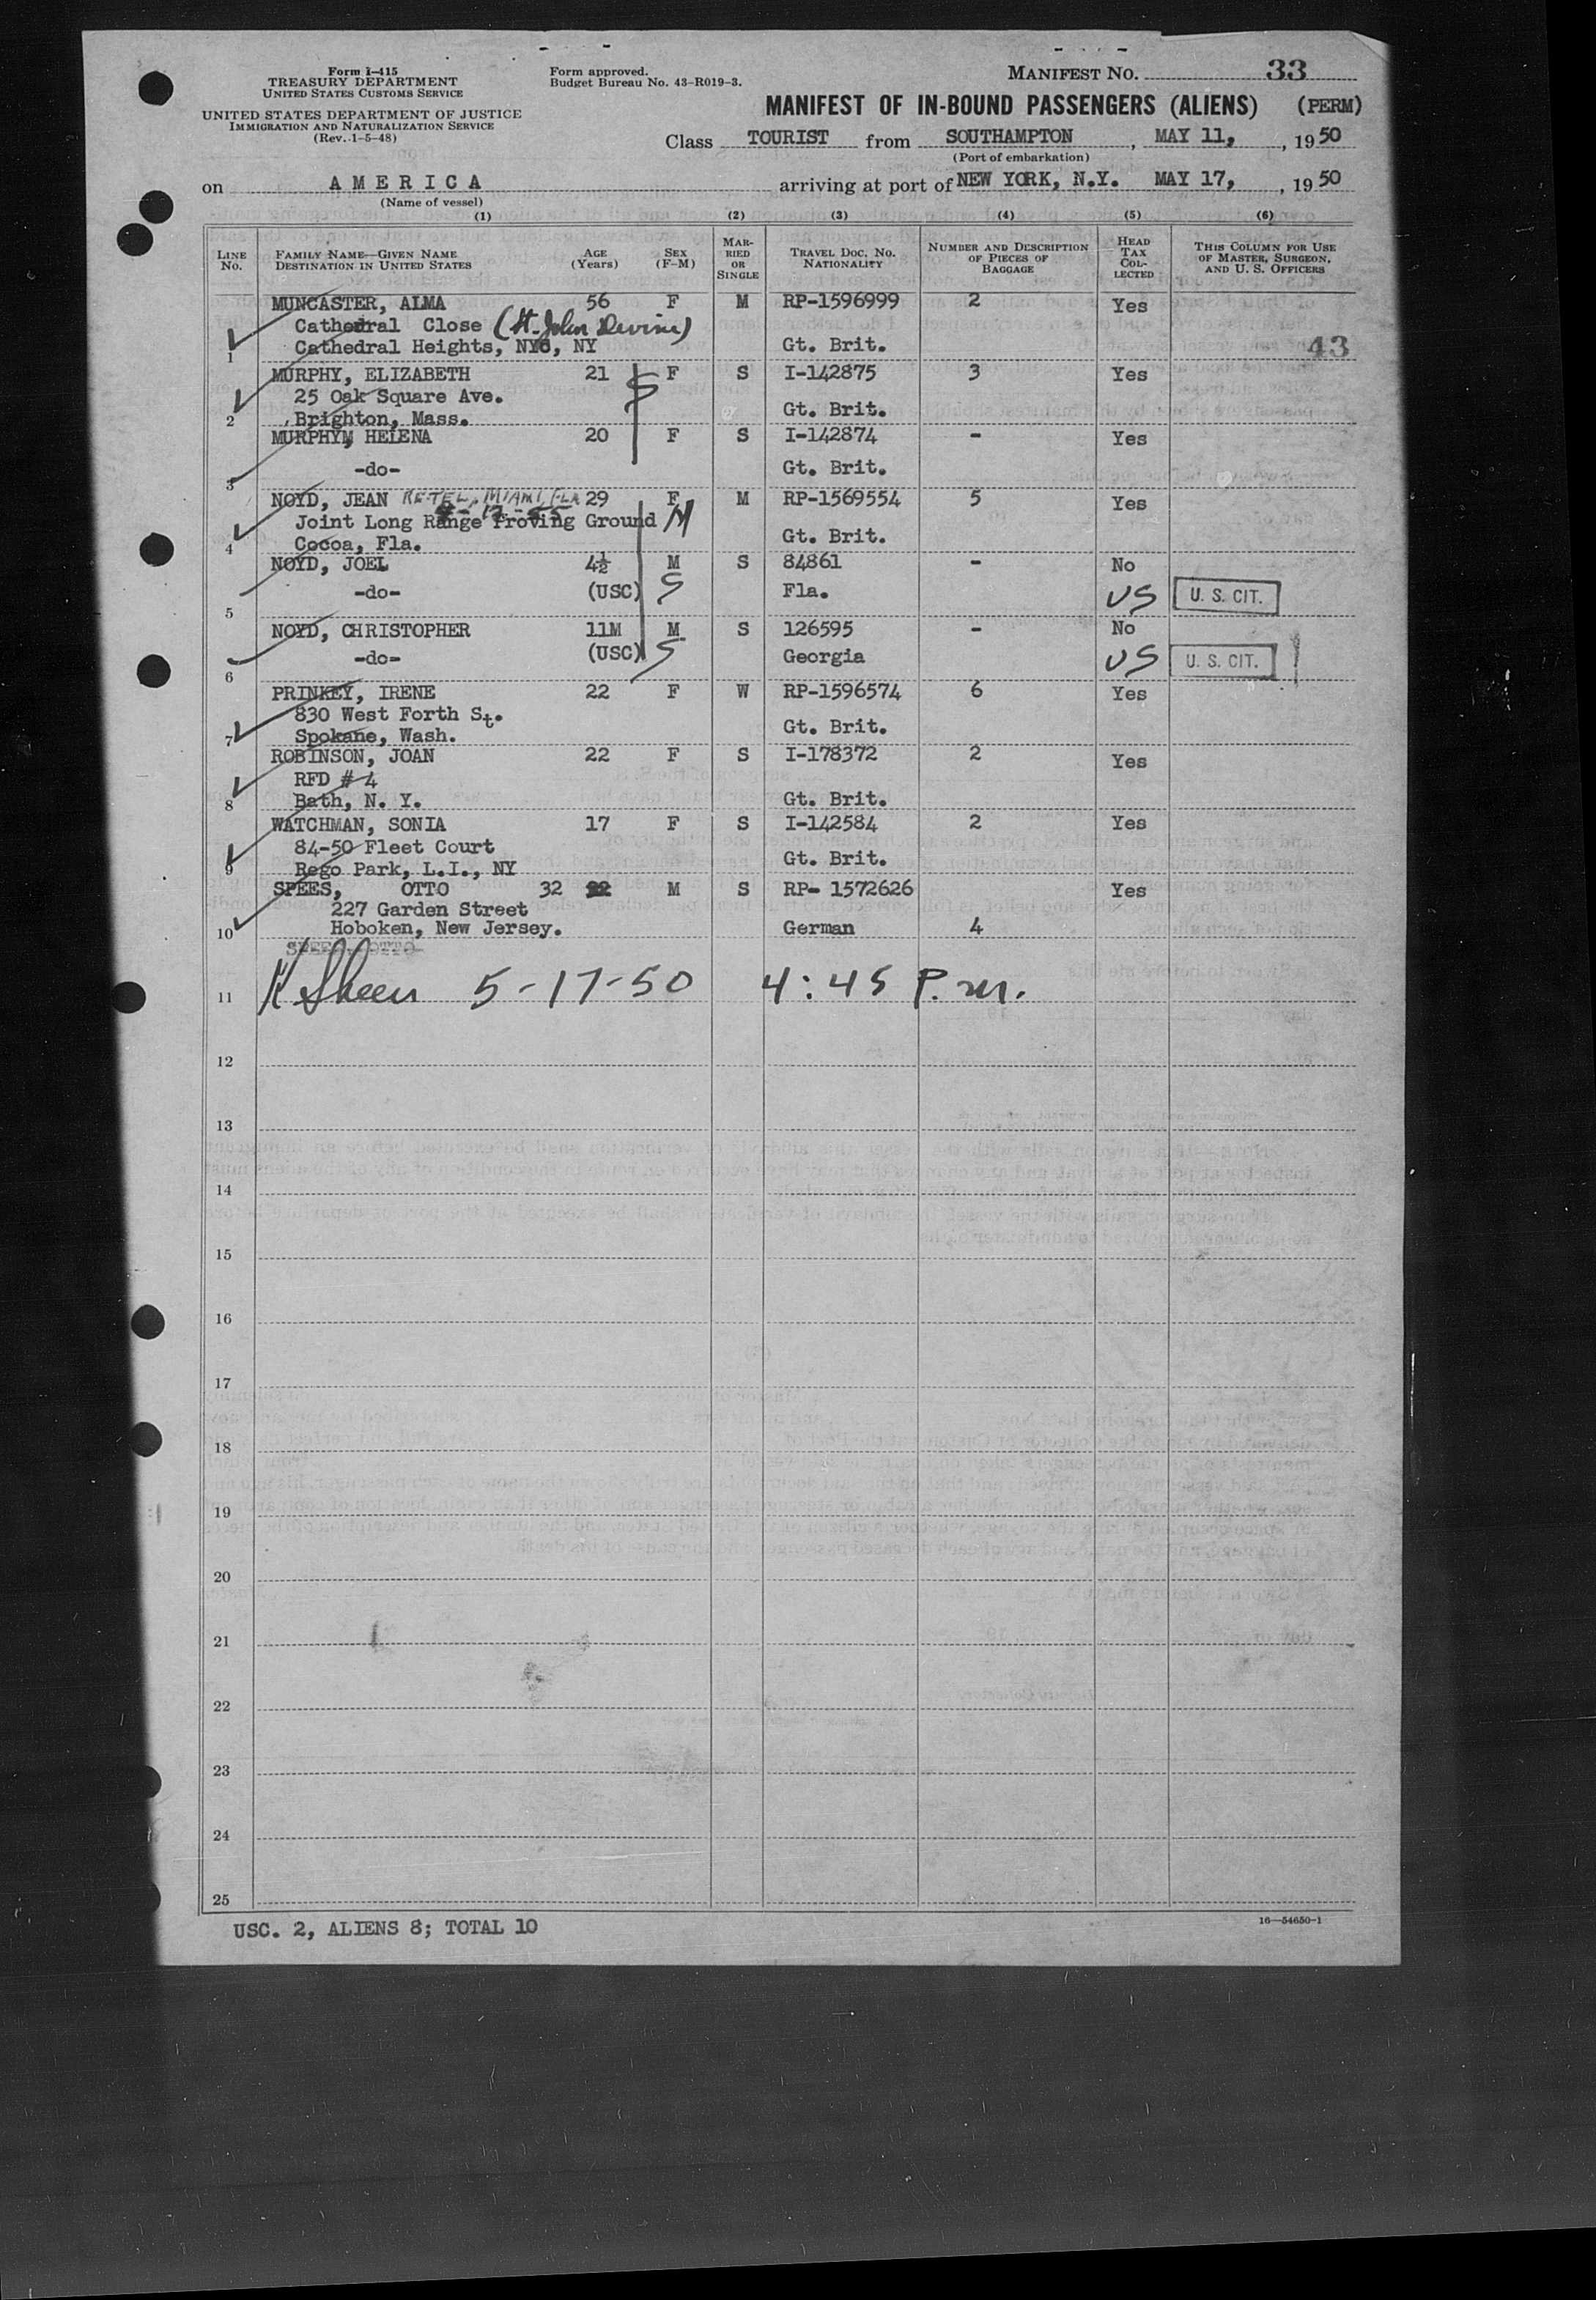 Form I-415
TREASURY DEPARTMENT
UNITED STATES CUSTOMS SERVICE
UNITED STATES DEPARTMENT OF JUSTICE
IMMIGRATION AND NATURALIZATION SERVICE
(Rev. 1-5-48)
Form approved.
Budget Bureau No. 43-R019-3.
MANIFEST NO. 33
MANIFEST OF IN-BOUND PASSENGERS (ALIENS) (PERM)
Class TOURIST from SOUTHAMPTON, MAY 11, 1950
(Port of embarkation)
on AMERICA arriving at port of NEW YORK, N.Y. MAY 17, 1950
(Name of vessel)
(1) (2) (3) (4) (5) (6)
LINE No. FAMILY NAME—GIVEN NAME DESTINATION IN UNITED STATES AGE (Years) SEX (F-M) MARRIED OR SINGLE TRAVEL DOC. NO. NATIONALITY NUMBER AND DESCRIPTION OF PIECES OF BAGGAGE HEAD TAX COLLECTED THIS COLUMN FOR USE OF MASTER, SURGEON, AND U. S. OFFICERS
MUNCASTER, ALMA 56 F M RP-1596999 2 Yes
Cathedral Close (St. John Devine)
1 Cathedral Heights, NYC, NY Gt. Brit. 43
MURPHY, ELIZABETH 21 F S I-142875 3 Yes
25 Oak Square Ave. S
2 Brighton, Mass. Gt. Brit.
MURPHYM, HELENA 20 F S I-142874 - Yes
3 -do- Gt. Brit.
NOYD, JEAN RE-TEL, MIAMI, FLA 29 F M RP-1569554 5 Yes
Joint Long Range Proving Ground M
4 Cocoa, Fla. Gt. Brit.
NOYD, JOEL 4½ M S 84861 - No
5 -do- (USC) S Fla. US U. S. CIT.
NOYD, CHRISTOPHER 11M M S 126595 - No
6 -do- (USC) S Georgia US U. S. CIT.
PRINKEY, IRENE 22 F W RP-1596574 6 Yes
830 West Forth St.
7 Spokane, Wash. Gt. Brit.
ROBINSON, JOAN 22 F S I-178372 2 Yes
RFD #4
8 Bath, N. Y. Gt. Brit.
WATCHMAN, SONIA 17 F S I-142584 2 Yes
84-50 Fleet Court
9 Rego Park, L.I., NY Gt. Brit.
SPEES, OTTO 32 M S RP- 1572626 Yes
227 Garden Street
10 Hoboken, New Jersey. German 4
SPEES, OTTO
11 K Sheen 5-17-50 4:45 P.m.
12
13
14
15
16
17
18
19
20
21
22
23
24
25
USC. 2, ALIENS 8; TOTAL 10
16—54650-1